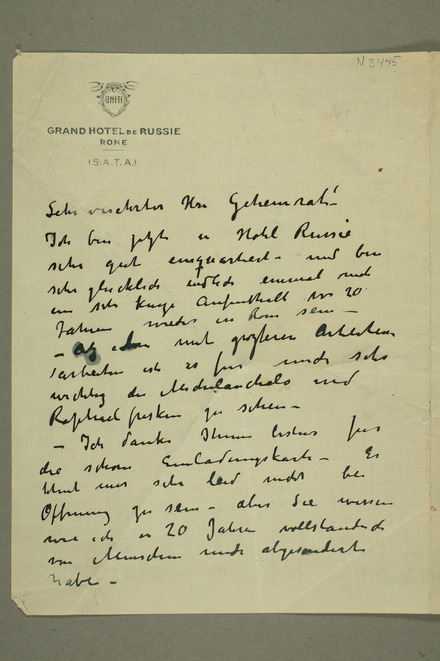 N 3445
UNITI
GRAND HOTEL DE RUSSIE
ROME
(S.A.T.A.)
Sehr verehrter Herr Geheimrat!
Ich bin jetzt in Hotel Russie
sehr gut einquartiert - und bin
sehr glücklich endlich einmal nach
kurze Aufenthalt vor 20
Jahren wieder in Rom sein -
- mit grösseren Arbeiten
ist es für mich sehr
wichtig die Michelangelo und
Raphael fresken zu sehen -
- Ich danke Ihnen bestens für
die schöne Einladungskarte - Es
thut mir sehr leid nicht bei
Öffnung zu sein - aber Sie wissen
wie ich in 20 Jahren vollständich
von Menschen mich abgesondert
habe -